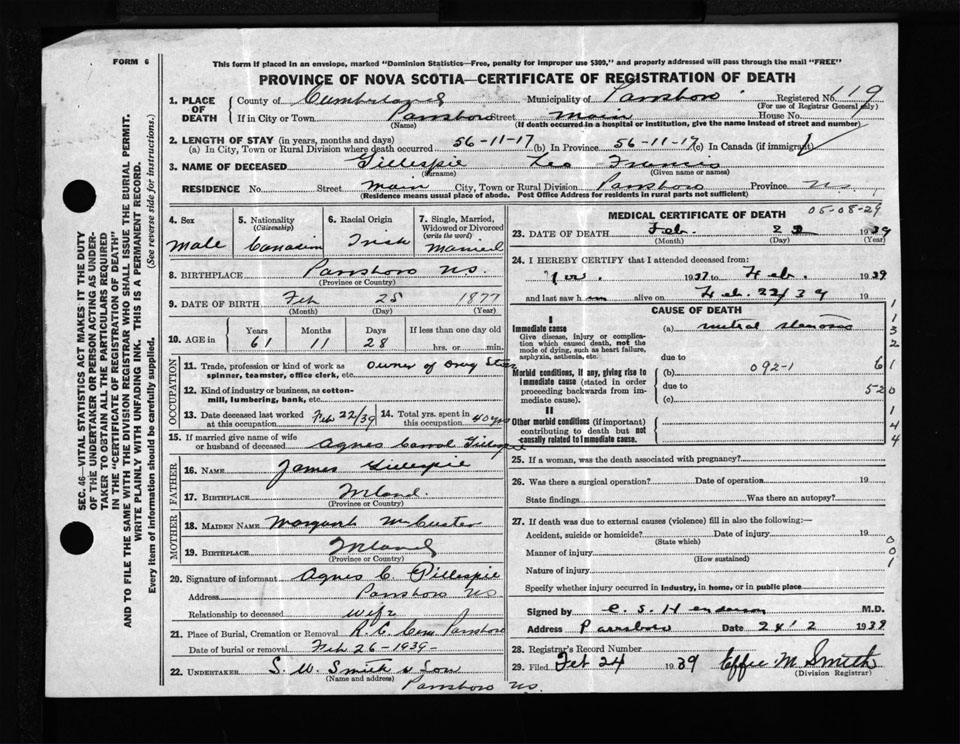 FORM 6
This form if placed in an envelope, marked "Dominion Statistics—Free, penalty for improper use $300," and properly addressed will pass through the mail "FREE"
PROVINCE OF NOVA SCOTIA—CERTIFICATE OF REGISTRATION OF DEATH
1. PLACE OF DEATH { County of Cumberland Municipality of Parrsboro Registered No. 119
(For use of Registrar General only)
If in City or Town Parrsboro Street Main House No.
(Name) (If death occurred in a hospital or institution, give the name instead of street and number)
2. LENGTH OF STAY (in years, months and days)
(a) In City, Town or Rural Division where death occurred 56-11-17 (b) In Province 56-11-17 (c) In Canada (if immigrant)
3. NAME OF DECEASED Gillespie Leo Francis
(Surname) (Given name or names)
RESIDENCE No. Street Main City, Town or Rural Division Parrsboro Province N.S.
(Residence means usual place of abode. Post Office Address for residents in rural parts not sufficient)
4. Sex
Male
5. Nationality
(Citizenship)
Canadian
6. Racial Origin
Irish
7. Single, Married, Widowed or Divorced
(write the word)
Married
8. BIRTHPLACE Parrsboro N.S.
(Province or Country)
9. DATE OF BIRTH Feb 25 1877
(Month) (Day) (Year)
10. AGE in { Years Months Days If less than one day old
61 11 28 hrs. or min.
OCCUPATION
11. Trade, profession or kind of work as spinner, teamster, office clerk, etc. Owner of Drug Store
12. Kind of industry or business, as cotton-mill, lumbering, bank, etc.
13. Date deceased last worked at this occupation Feb 22/39
14. Total yrs. spent in this occupation 40 yrs
15. If married give name of wife or husband of deceased Agnes Carrol Gillespie
FATHER
16. NAME James Gillespie
17. BIRTHPLACE Ireland.
(Province or Country)
MOTHER
18. MAIDEN NAME
19. BIRTHPLACE Ireland
(Province or Country)
20. Signature of informant Agnes C. Gillespie
Address Parrsboro N.S.
Relationship to deceased wife
21. Place of Burial, Cremation or Removal R.C. Cem. Parrsboro
Date of burial or removal Feb 26-1939-
22. UNDERTAKER S. W. Smith & Son
(Name and address)
Parrsboro N.S.
MEDICAL CERTIFICATE OF DEATH 05-08-29
23. DATE OF DEATH Feb. 1939
(Month) (Day) (Year)
24. I HEREBY CERTIFY that I attended deceased from:
Nov. 1937 to Feb. 1939
and last saw him alive on Feb. 22/39 19
CAUSE OF DEATH
I
Immediate cause
Give disease, injury or complication which caused death, not the mode of dying, such as heart failure, asphyxia, asthenia, etc.
(a) mitral stenosis
due to
Morbid conditions, if any, giving rise to immediate cause (stated in order proceeding backwards from immediate).
(b) 092-1
due to
(c)
II
Other morbid conditions (if important) contributing to death but not causally related to immediate cause.
1
1
3
2
6 1
5-2 0
1
4
4
25. If a woman, was the death associated with pregnancy?
26. Was there a surgical operation? Date of operation 19
State findings Was there an autopsy?
27. If death was due to external causes (violence) fill in also the following:—
Accident, suicide or homicide? Date of injury 19
(State which)
Manner of injury
(How sustained)
Nature of injury
Specify whether injury occurred in industry, in home, or in public place
0
0
1
Signed by C. S. Henderson M.D.
Address Parrsboro Date 24/2 1939
28. Registrar's Record Number
29. Filed Feb 24 1939 Effie M. Smith
(Division Registrar)
SEC. 46—VITAL STATISTICS ACT MAKES IT THE DUTY
OF THE UNDERTAKER OR PERSON ACTING AS UNDER-
TAKER TO OBTAIN ALL THE PARTICULARS REQUIRED
IN THE "CERTIFICATE OF REGISTRATION OF DEATH"
AND TO FILE THE SAME WITH THE DIVISION REGISTRAR WHO SHALL ISSUE THE BURIAL PERMIT.
WRITE PLAINLY WITH UNFADING INK. THIS IS A PERMANENT RECORD.
Every item of information should be carefully supplied. (See reverse side for instructions.)